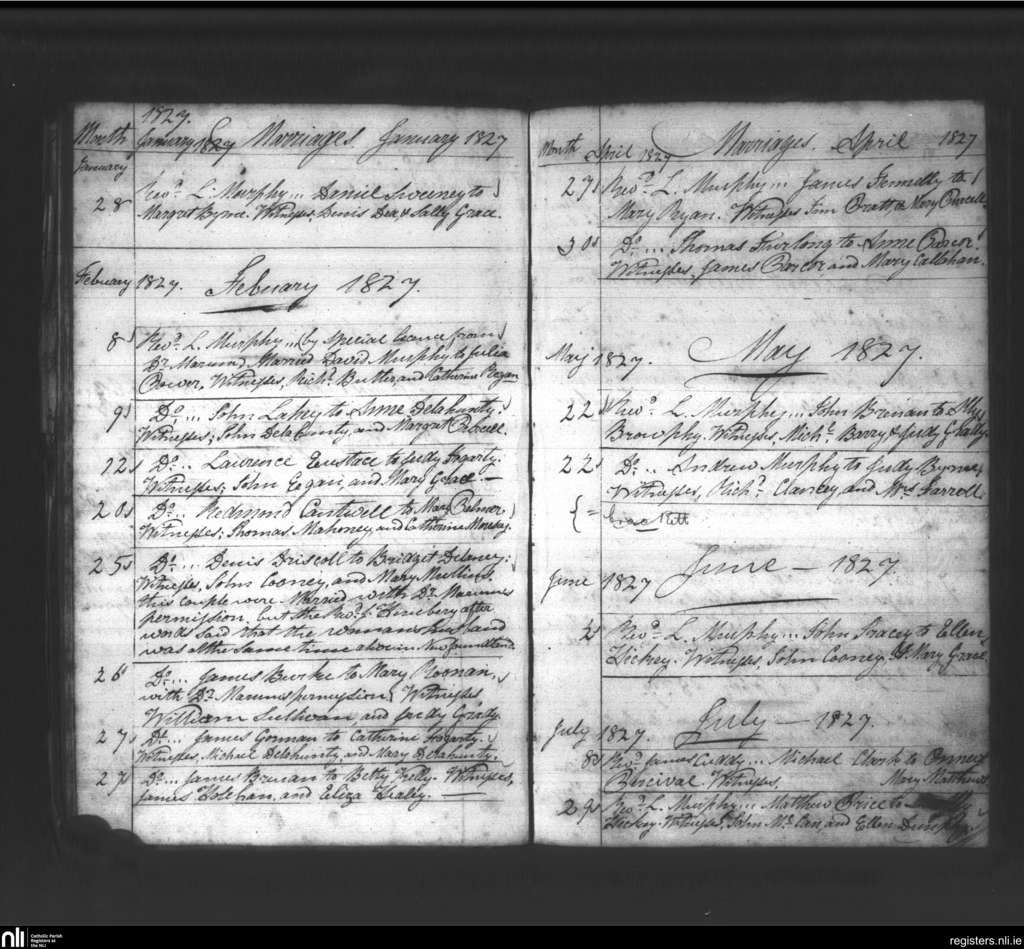 1827.
Month January 1827 Marriages. January 1827
January
28 Revd. L. Murphy... Daniel Sweeney to
Margret Byrne. Witnesses, Denis Dea, & Sally Grace.
February 1827. Febuary 1827.
8 Revd. L. Murphy... (by special leave from)
Dr. Marum, Married David Murphy to Julia
Power. Witnesses, Richd. Butler and Catherine Regan
9 Do... John Lahey to Anne Delahunty.
Witnesses; John Delahunty, and Margret Purcell.
12 Do... Laurence Eustace to Judy Fogarty.
Witnesses; John Eagan, and Mary Grace.
20 Do... Redmond Cantwell to Mary
Witnesses; Thomas Mahoney, and Catherine
25 Do... Denis Driscoll to Bridget Delaney;
Witnesses, John Cooney, and Mary Mullins.
this couple were Married with Dr. Marums
permission. but the Revd. J. after
wards said that the womans husband
was at the same time alive in Newfoundland.
26 Do... James Burke to Mary Noonan,
with Dr. Marums permission. Witnesses
William Sullivan, and Judy Grady.
27 Do... James Gorman to Catherine Fogarty.
Witnesses, Michael Delahunty, and Mary Delahunty.
27 Do... James Brenan to Betty Kelly. Witnesses,
James Holehan, and Eliza Healy.
Month April 1827 Marriages. April 1827
27 Revd. L. Murphy... James to
Mary Ryan. Witnesses Jim Pratt & Mary Purcell
30 Do... Thomas Furlong to Anne
Witnesses, James and Mary Callahan.
May 1827. May 1827.
22 Revd. L. Murphy... John Brenan to
Brophy. Witnesses, Michl. Barry & Judy
22 Do... Andrew Murphy to Judy Byrne,
Witnesses, Richd. Clancey, and Mrs Farrell
June 1827 June - 1827.
Revd. L. Murphy... John Tracey to Ellen
Hickey. Witnesses, John Cooney. & Mary Grace.
July 1827. July - 1827.
8 Revd. James Cuddy... Michael Clark to
Percival. Witnesses, Mary Matthews
29 Revd. L. Murphy... Matthew Price to
Hickey. Witnesses, John and Ellen Dunphy
nli
Catholic Parish
Registers at
the NLI
registers.nli.ie